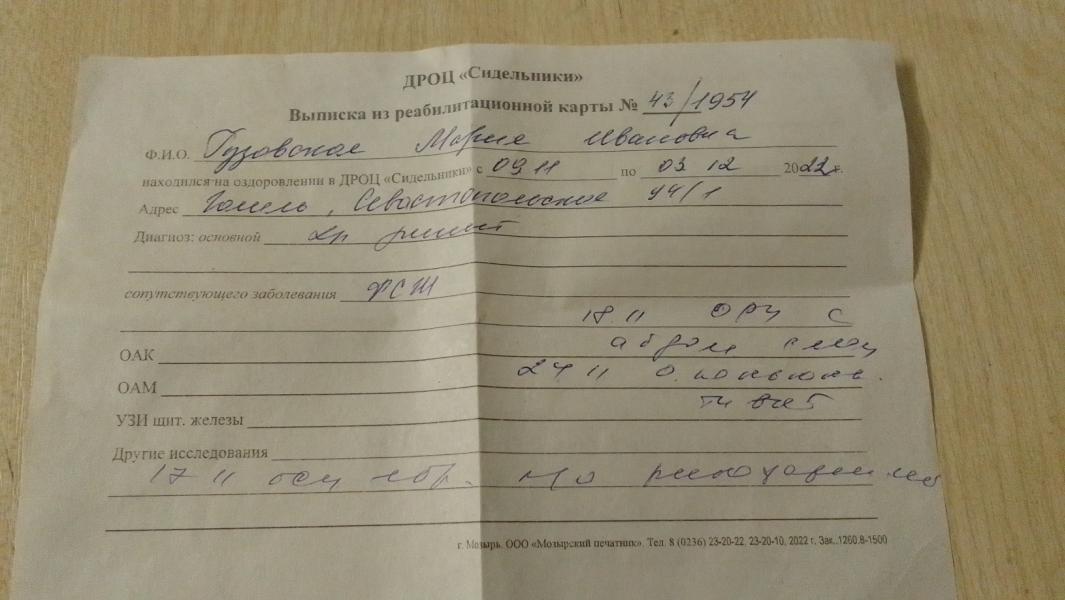 ДРОЦ «Сидельники»
Выписка из реабилитационной карты № 43/1954
Ф.И.О. Гузовская Мария Ивановна
находился на оздоровлении в ДРОЦ «Сидельники» с 09 11 по 03 12 2022 г.
Адрес Гомель, Севастопольская 44/1
Диагноз: основной хр ринит
сопутствующего заболевания ФСШ
18.11 ОРИ с
абдом синд
ОАК
24 11 О. конъюнк
ОАМ
тивит
УЗИ щит. железы
Другие исследования
17 11 осм
г. Мозырь. ООО «Мозырский печатник». Тел. 8 (0236) 23-20-22, 23-20-10, 2022 г. Зак..1260.8-1500